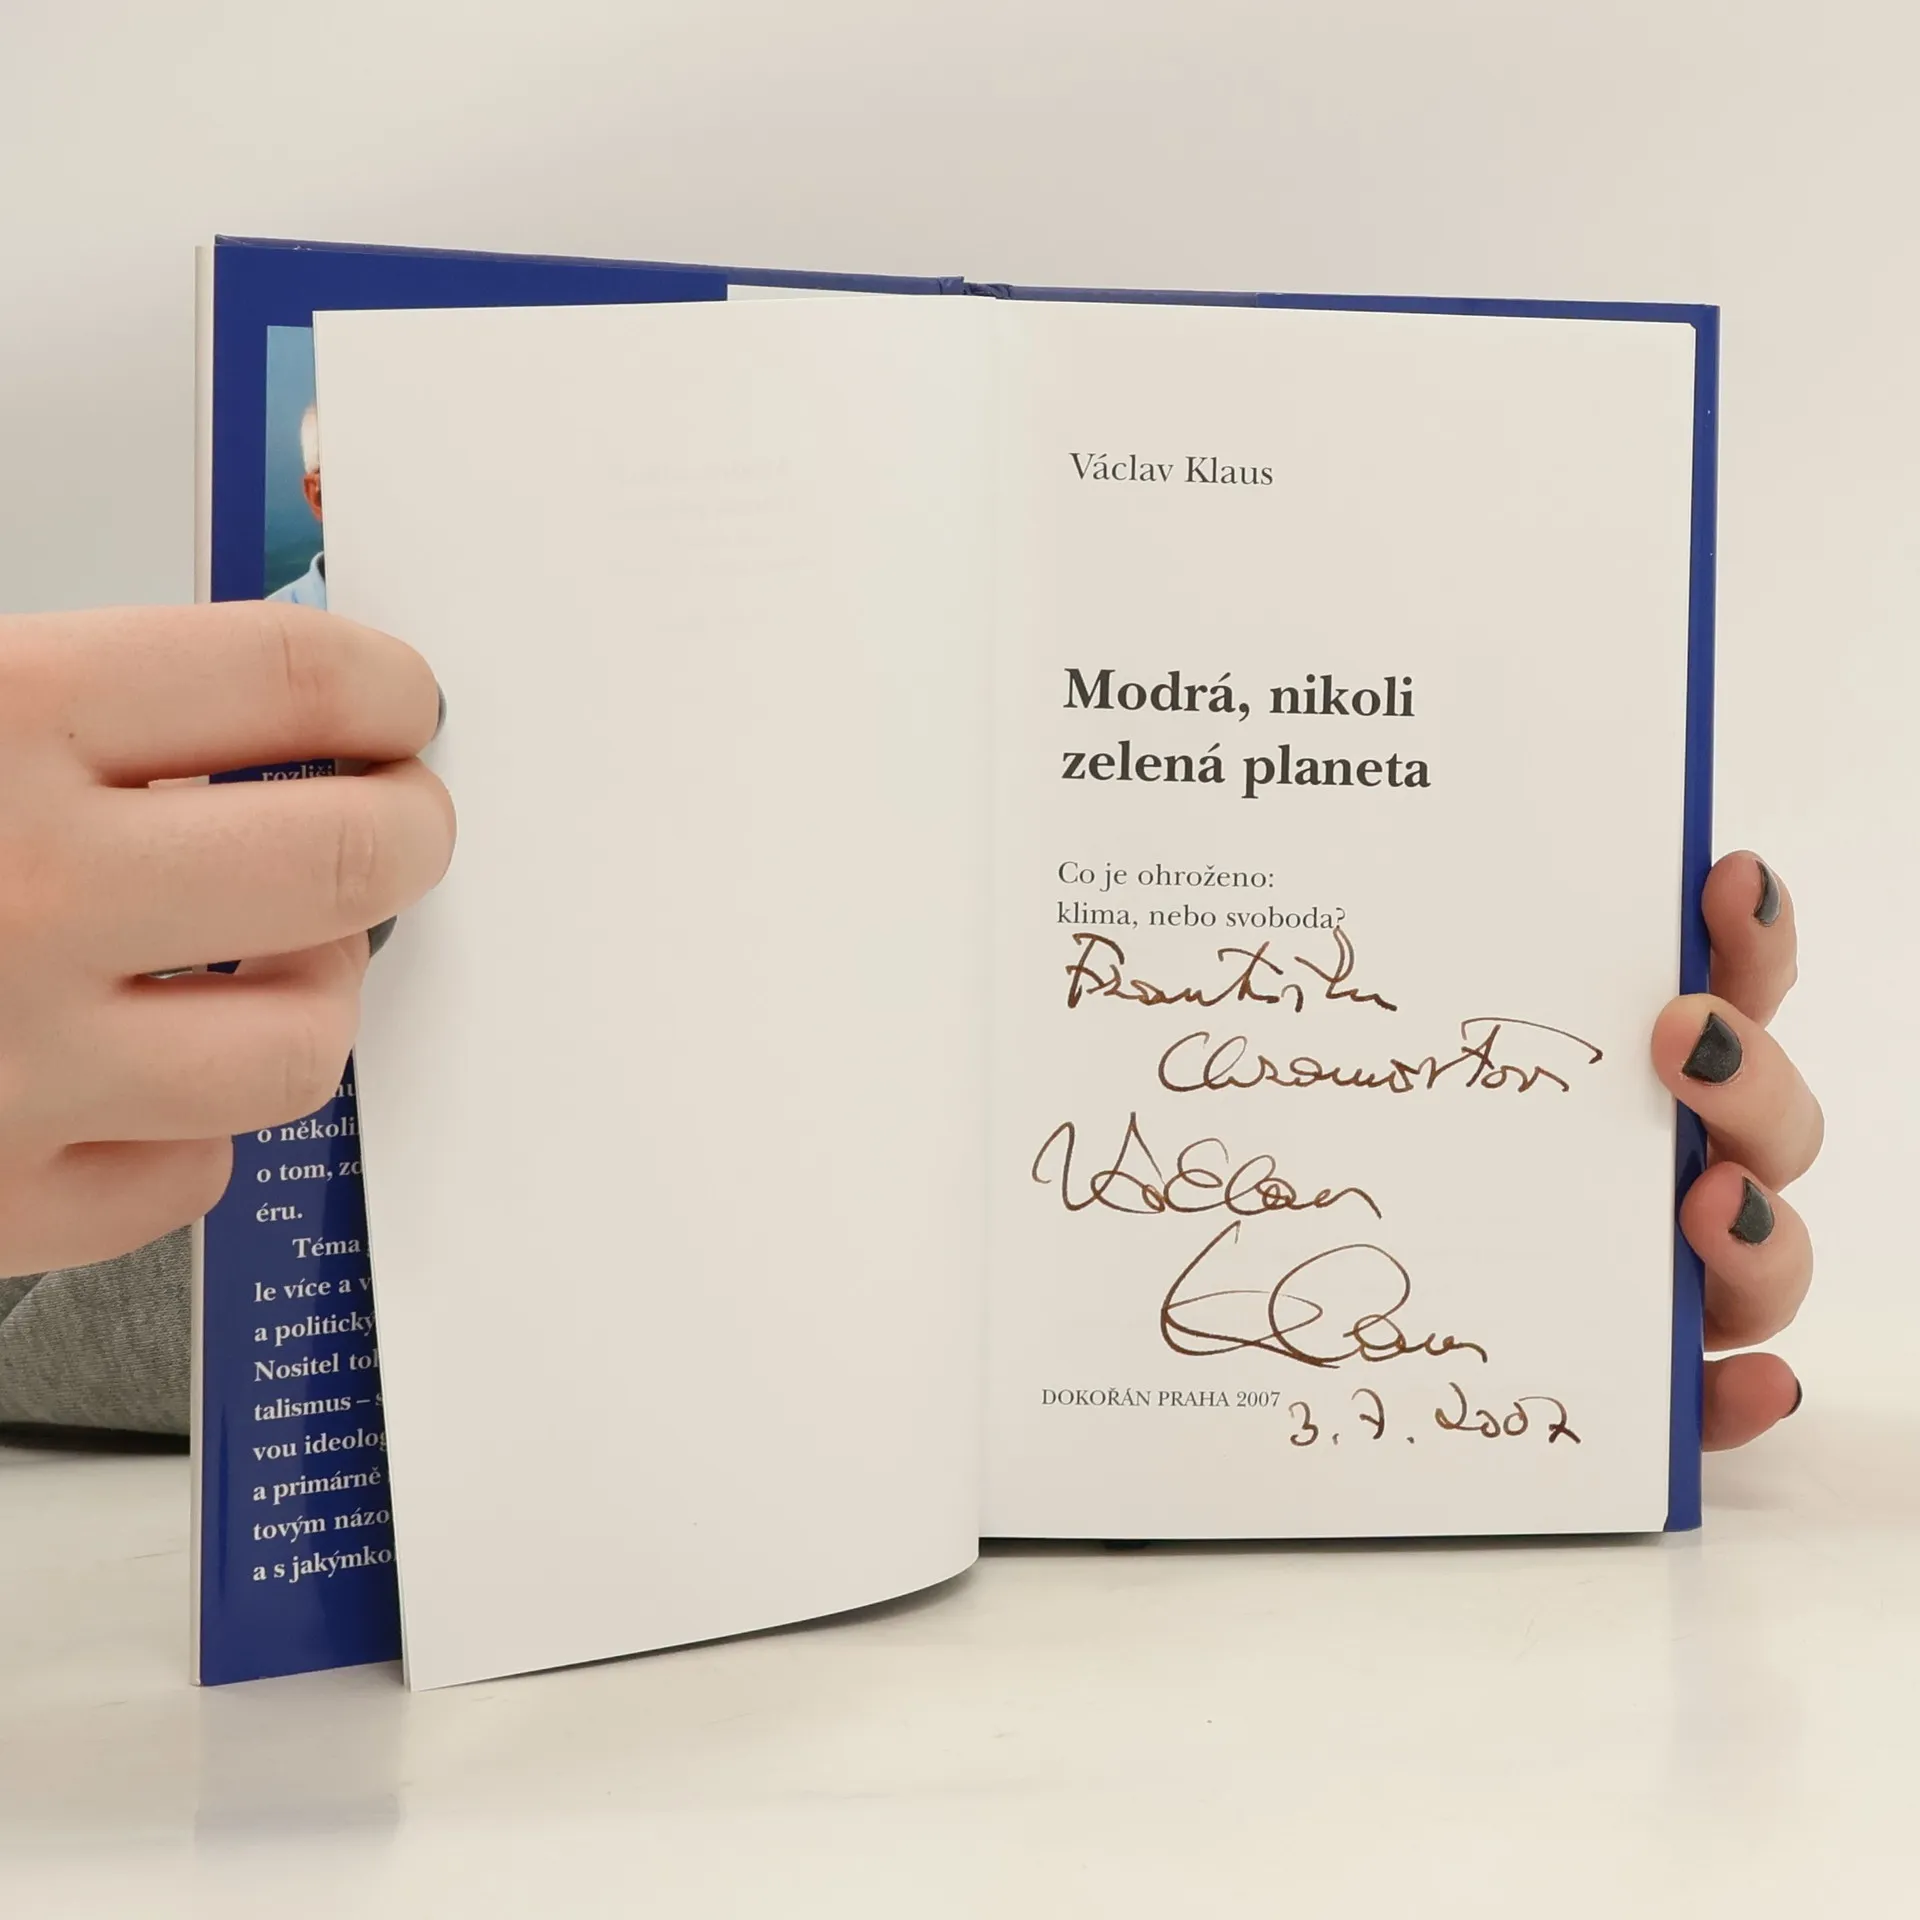 rozliši
o několi
o tom, zd
éru.
Téma
le více a v
a politický
Nositel tol
talismus – s
vou ideolog
a primárně
tovým názo
a s jakýmko
Václav Klaus
Modrá, nikoli
zelená planeta
Co je ohroženo:
klima, nebo svoboda?
Františku
Václav
Klaus
DOKOŘÁN PRAHA 2007
3.7.2007